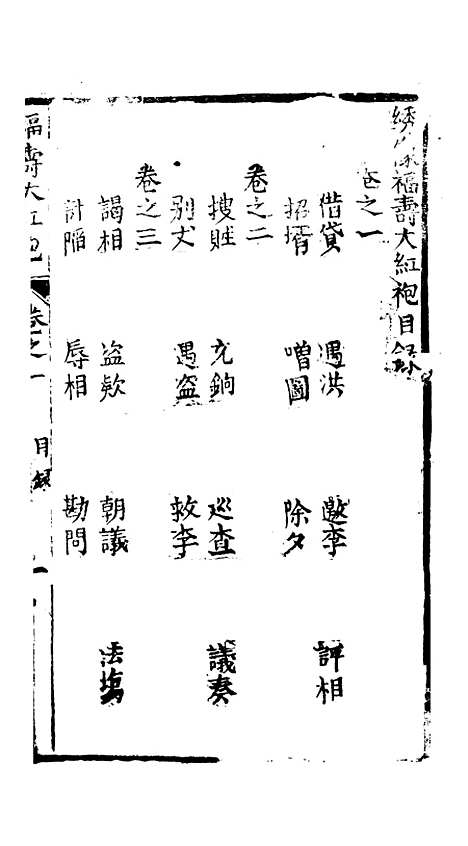 繡像福壽大紅袍目錄
卷之一
借貸 遇洪 邀李 評相
招壻 噌圖 除夕
卷之二
搜賍 充餉 巡查 議奏
别丈 遇盜 救李
卷之三
謁相 盗欵 朝議 法塲
計陷 辱相 勘問
福壽大紅袍 卷之一 目錄 一